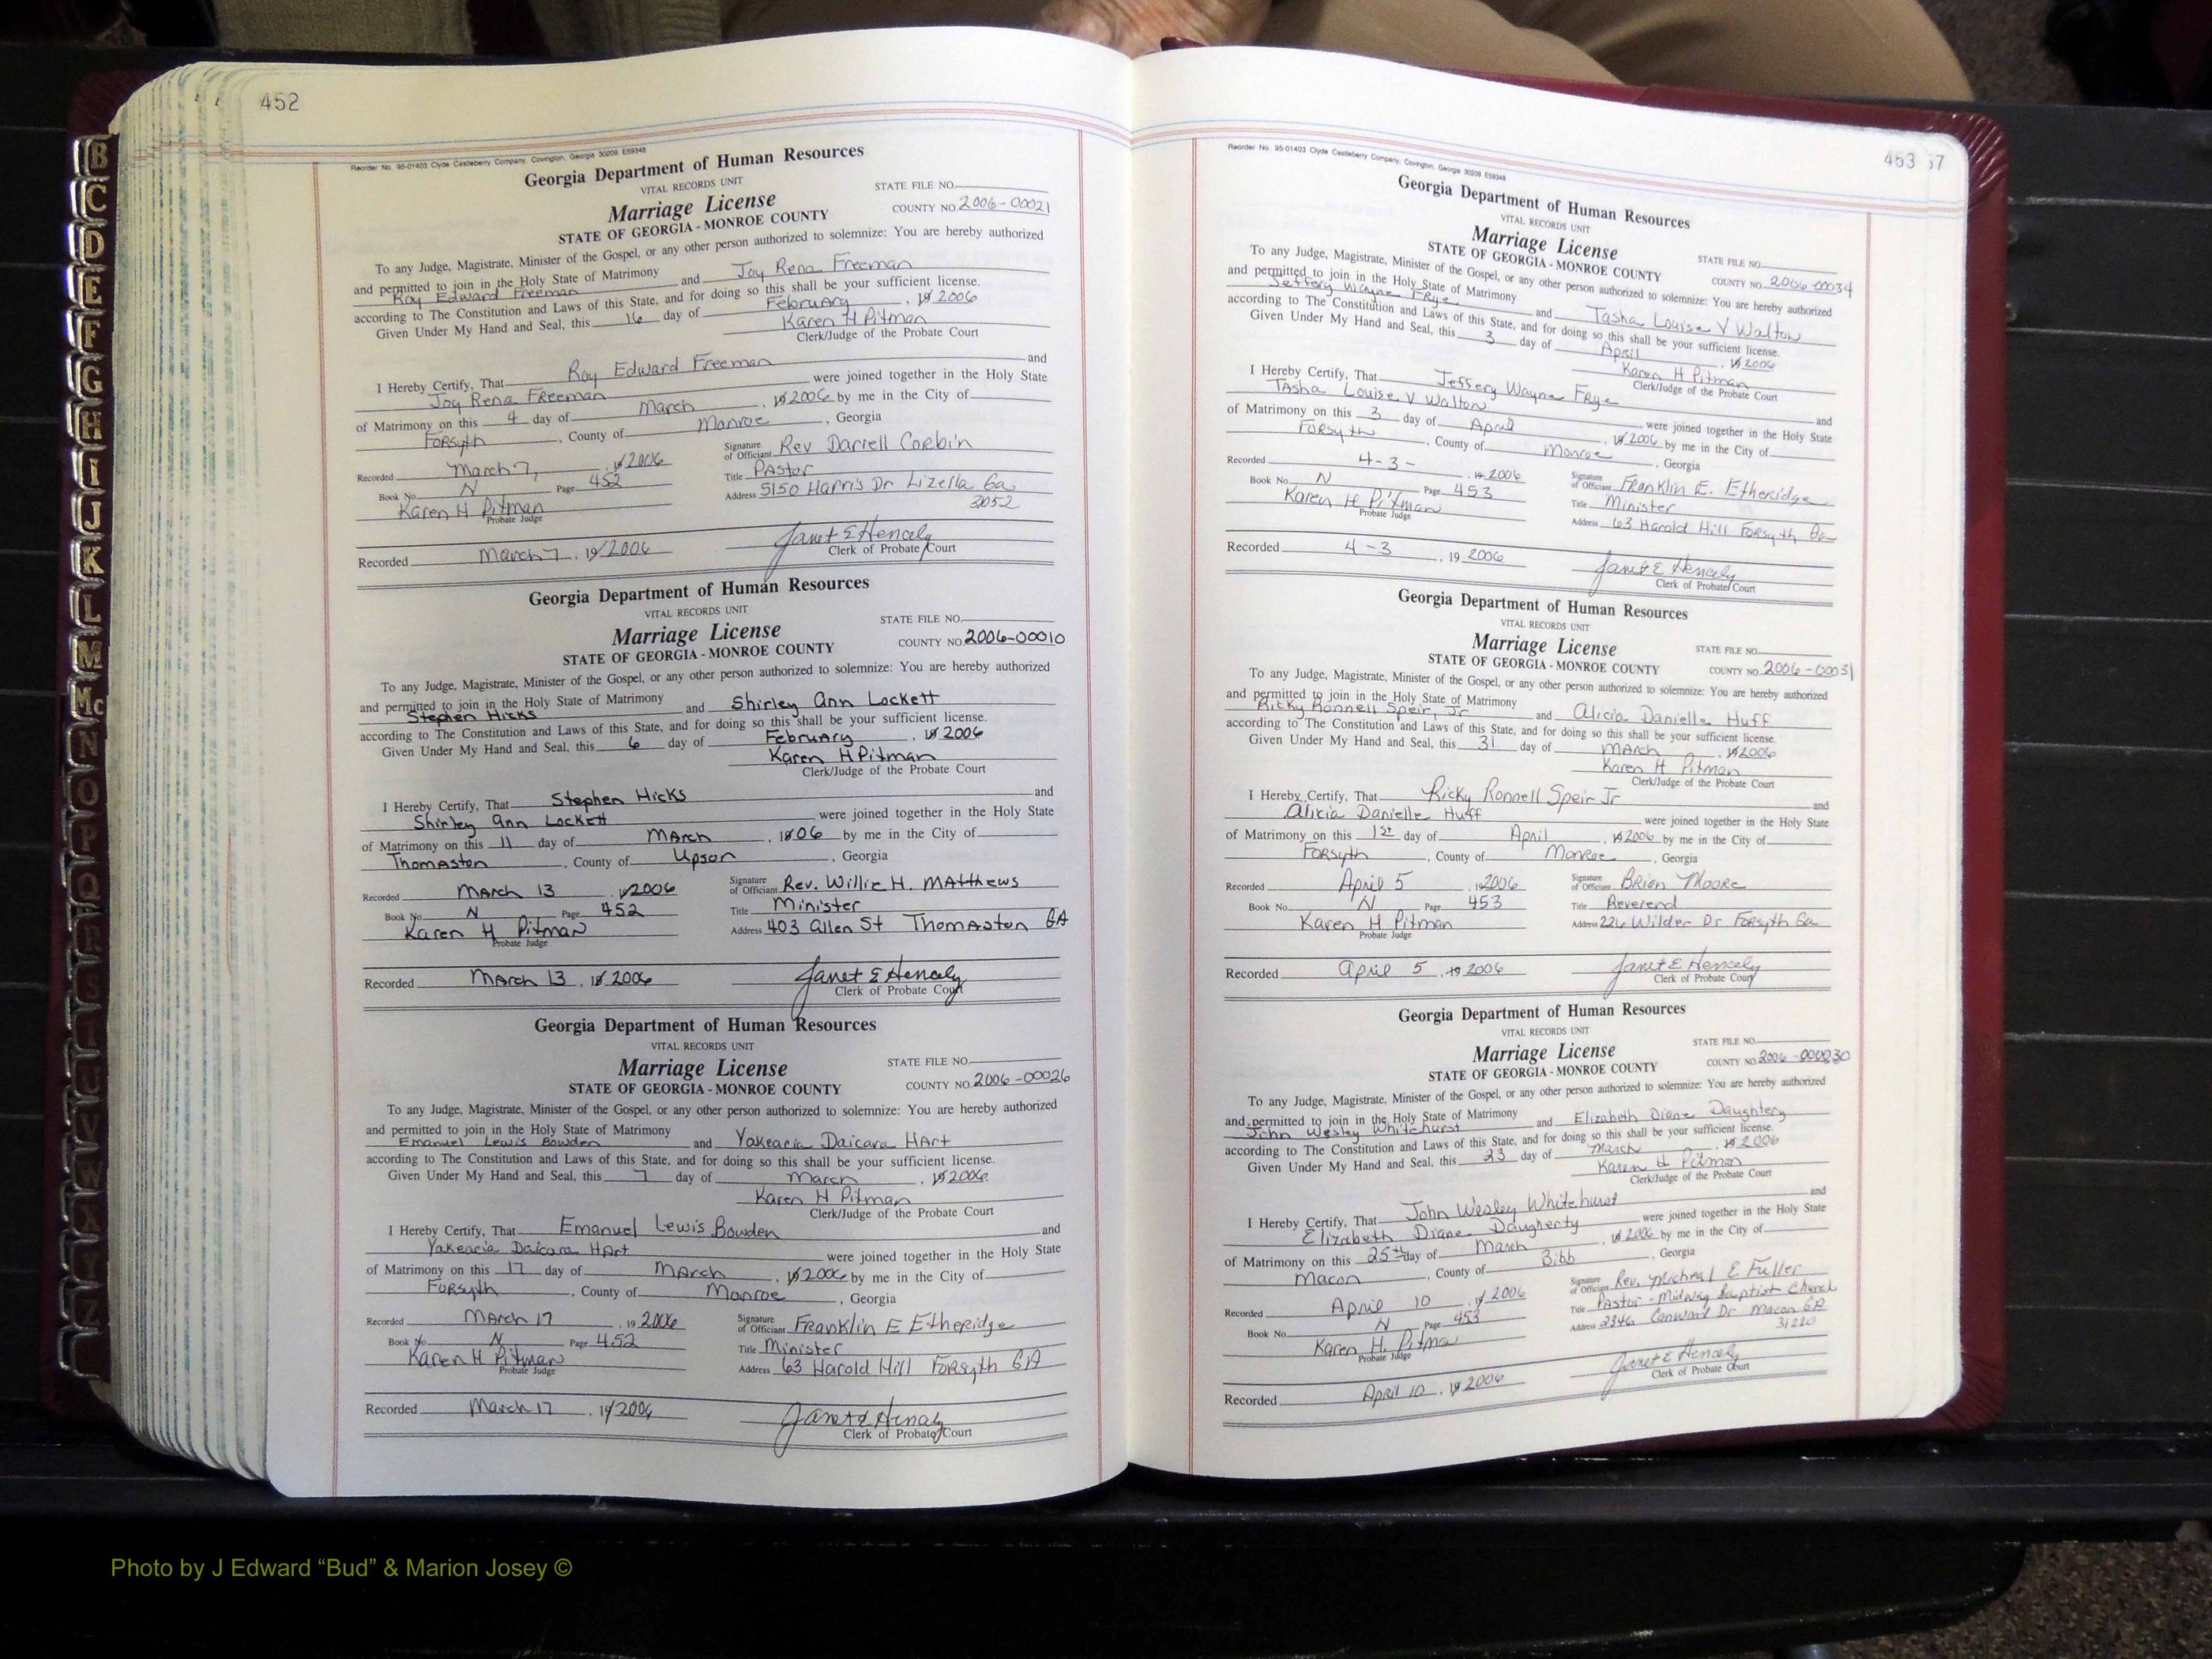 452
Reorder No. 95-01403 Clyde Castleberry Company, Covington, Georgia 30209 E59348
Georgia Department of Human Resources
VITAL RECORDS UNIT
Marriage License
STATE OF GEORGIA - MONROE COUNTY
STATE FILE NO.
COUNTY NO. 2006-00021
To any Judge, Magistrate, Minister of the Gospel, or any other person authorized to solemnize: You are hereby authorized
and permitted to join in the Holy State of Matrimony
Roy Edward Freeman and Joy Rena Freeman
according to The Constitution and Laws of this State, and for doing so this shall be your sufficient license.
Given Under My Hand and Seal, this 16 day of February, 19 2006
Karen H Pitman
Clerk/Judge of the Probate Court
I Hereby Certify, That Roy Edward Freeman and
Joy Rena Freeman were joined together in the Holy State
of Matrimony on this 4 day of March, 19 2006 by me in the City of
Forsyth, County of Monroe, Georgia
Recorded March 7, 19 2006
Signature of Officiant Rev Darrell Corbin
Book No. N Page 452
Title Pastor
Karen H Pitman
Probate Judge
Address 5150 Harris Dr Lizella Ga
31052
Recorded March 7, 19 2006
Janet E Hencely
Clerk of Probate Court
Georgia Department of Human Resources
VITAL RECORDS UNIT
Marriage License
STATE OF GEORGIA - MONROE COUNTY
STATE FILE NO.
COUNTY NO. 2006-00010
To any Judge, Magistrate, Minister of the Gospel, or any other person authorized to solemnize: You are hereby authorized
and permitted to join in the Holy State of Matrimony
Stephen Hicks and Shirley Ann Lockett
according to The Constitution and Laws of this State, and for doing so this shall be your sufficient license.
Given Under My Hand and Seal, this 6 day of February, 19 2006
Karen H Pitman
Clerk/Judge of the Probate Court
I Hereby Certify, That Stephen Hicks and
Shirley Ann Lockett were joined together in the Holy State
of Matrimony on this 11 day of March, 19 06 by me in the City of
Thomaston, County of Upson, Georgia
Recorded March 13, 19 2006
Signature of Officiant Rev. Willie H. Matthews
Book No. N Page 452
Title Minister
Karen H Pitman
Probate Judge
Address 403 Allen St Thomaston GA
Recorded March 13, 19 2006
Janet E Hencely
Clerk of Probate Court
Georgia Department of Human Resources
VITAL RECORDS UNIT
Marriage License
STATE OF GEORGIA - MONROE COUNTY
STATE FILE NO.
COUNTY NO. 2006-00026
To any Judge, Magistrate, Minister of the Gospel, or any other person authorized to solemnize: You are hereby authorized
and permitted to join in the Holy State of Matrimony
Emanuel Lewis Bowden and Yakeacia Daicara Hart
according to The Constitution and Laws of this State, and for doing so this shall be your sufficient license.
Given Under My Hand and Seal, this 7 day of March, 19 2006
Karen H Pitman
Clerk/Judge of the Probate Court
I Hereby Certify, That Emanuel Lewis Bowden and
Yakeacia Daicara Hart were joined together in the Holy State
of Matrimony on this 17 day of March, 19 2006 by me in the City of
Forsyth, County of Monroe, Georgia
Recorded March 17, 19 2006
Signature of Officiant Franklin E Etheridge
Book No. N Page 452
Title Minister
Karen H Pitman
Probate Judge
Address 63 Harold Hill Forsyth GA
Recorded March 17, 19 2006
Janet E Hencely
Clerk of Probate Court
453
57
Reorder No. 95-01403 Clyde Castleberry Company, Covington, Georgia 30209 E59348
Georgia Department of Human Resources
VITAL RECORDS UNIT
Marriage License
STATE OF GEORGIA - MONROE COUNTY
STATE FILE NO.
COUNTY NO. 2006-00034
To any Judge, Magistrate, Minister of the Gospel, or any other person authorized to solemnize: You are hereby authorized
and permitted to join in the Holy State of Matrimony
Jeffery Wayne Frye and Tasha Louise V Walton
according to The Constitution and Laws of this State, and for doing so this shall be your sufficient license.
Given Under My Hand and Seal, this 3 day of April, 19 2006
Karen H Pitman
Clerk/Judge of the Probate Court
I Hereby Certify, That Jeffery Wayne Frye and
Tasha Louise V Walton were joined together in the Holy State
of Matrimony on this 3 day of April, 19 2006 by me in the City of
Forsyth, County of Monroe, Georgia
Recorded 4-3-, 19 2006
Signature of Officiant Franklin E. Etheridge
Book No. N Page 453
Title Minister
Karen H Pitman
Probate Judge
Address 63 Harold Hill Forsyth Ga
Recorded 4-3, 19 2006
Janet E Hencely
Clerk of Probate Court
Georgia Department of Human Resources
VITAL RECORDS UNIT
Marriage License
STATE OF GEORGIA - MONROE COUNTY
STATE FILE NO.
COUNTY NO. 2006-00031
To any Judge, Magistrate, Minister of the Gospel, or any other person authorized to solemnize: You are hereby authorized
and permitted to join in the Holy State of Matrimony
Ricky Ronnell Speir, Jr and Alicia Danielle Huff
according to The Constitution and Laws of this State, and for doing so this shall be your sufficient license.
Given Under My Hand and Seal, this 31 day of March, 19 2006
Karen H Pitman
Clerk/Judge of the Probate Court
I Hereby Certify, That Ricky Ronnell Speir Jr and
Alicia Danielle Huff were joined together in the Holy State
of Matrimony on this 1st day of April, 19 2006 by me in the City of
Forsyth, County of Monroe, Georgia
Recorded April 5, 19 2006
Signature of Officiant Brian Moore
Book No. N Page 453
Title Reverend
Karen H Pitman
Probate Judge
Address 226 Wilder Dr Forsyth Ga
Recorded April 5, 19 2006
Janet E Hencely
Clerk of Probate Court
Georgia Department of Human Resources
VITAL RECORDS UNIT
Marriage License
STATE OF GEORGIA - MONROE COUNTY
STATE FILE NO.
COUNTY NO. 2006-000030
To any Judge, Magistrate, Minister of the Gospel, or any other person authorized to solemnize: You are hereby authorized
and permitted to join in the Holy State of Matrimony
John Wesley Whitehurst and Elizabeth Diane Daughtery
according to The Constitution and Laws of this State, and for doing so this shall be your sufficient license.
Given Under My Hand and Seal, this 23 day of March, 19 2006
Karen H Pitman
Clerk/Judge of the Probate Court
I Hereby Certify, That John Wesley Whitehurst and
Elizabeth Diane Daugherty were joined together in the Holy State
of Matrimony on this 25th day of March, 19 2006 by me in the City of
Macon, County of Bibb, Georgia
Recorded April 10, 19 2006
Signature of Officiant Rev. Micheal E Fuller
Book No. N Page 453
Title Pastor - Midway Baptist Church
Karen H. Pitman
Probate Judge
Address 2346 Conward Dr Macon GA
31220
Recorded April 10, 19 2006
Janet E Hencely
Clerk of Probate Court
B
C
D
E
F
G
H
I
J
K
L
M
Mc
N
O
P
Q
R
S
T
U
V
W
X
Y
Z
Photo by J Edward “Bud” & Marion Josey ©